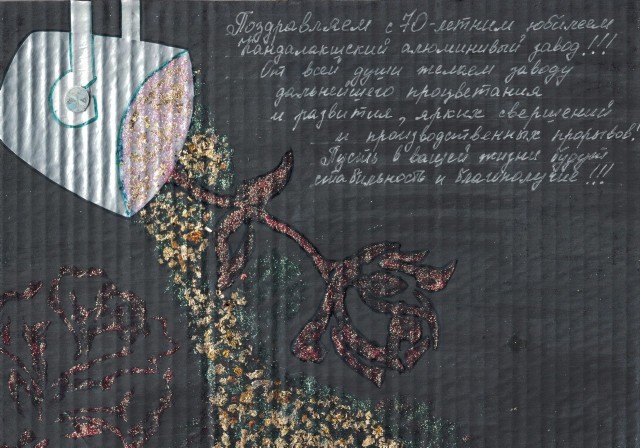 Поздравляем с 70-летним юбилеем
Кандалакшский алюминивый завод!!!
От всей души желаем заводу
дальнейшего процветания
и развития, ярких свершений
и производственных прорывов!
Пусть в вашей жизни будут
стабильность и благополучие!!!